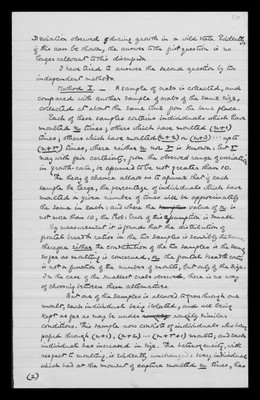 Deviation observed during growth in a wild state. Evidently,
if this can be shown, the answer to the first question is no
longer relevant to this discussion.
I have tried to answer the second question by two
independent methods.
Method I. — A sample of crabs is collected, and
compared with another sample of crabs of the same size,
collected at about the same time from the same place.
Each of these samples contains individuals which have
moulted n times; others which have moulted (n+1)
times; others which have moulted (n+2) or (n+3) ... up to
(n+r) times, where neither n nor r is known; but r
may with fair certainty, from the observed range of variation
in growth-rate, be assumed to be not greater than 10.
The theory of chance allows us to assume that if each
sample be large, the percentage of individuals which have
moulted a given number of times will be approximately
the same in each; and where the value of r is
not more than 10, the Prob. Error of this assumption is small.
By measurement it is found that the distribution of
frontal breadth ratios in the two samples is sensibly
therefore either the constitution of the two samples is the same
so far as moulting is concerned, or the frontal breadth ratio
is not a function of the number of moults, but only of the size.
In the case of the smallest crabs observed, there is no way
of choosing between these alternatives.
But one of the samples is allowed to grow through one
moult, each individual being isolated, and all being
kept as far as may be under roughly similar
conditions. This sample now consists of individuals who have
passed through (n+1), (n+2) ... (n+r+1) moults, and each
individual has increased in size. The heterogeneity, with
respect to moulting, is evidently unchanged: every individual
which had at the moment of capture moulted n times, has
(2)